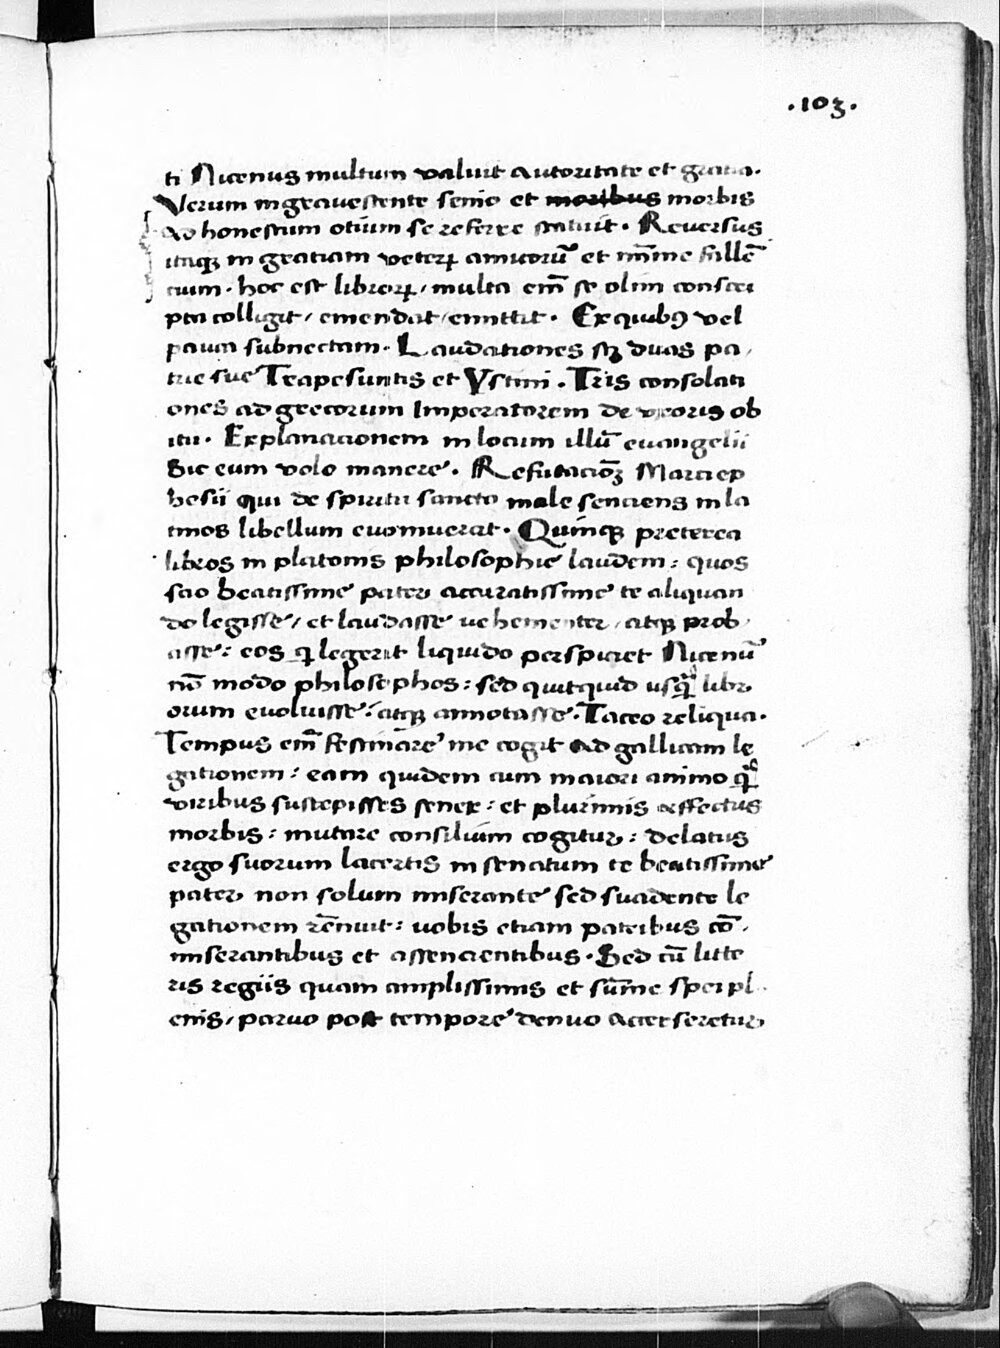 .103.
ti Nicenus multum valuit autoritate et gratia.
Verum ingravescente senio et moribus morbis
ad honestum otium se referre statuit. Reversus
itaqꝫ in gratiam veteꝝ amicorū et mīme fallē
tium. hoc est libroꝝ, multa em̄ se olim conscri
pta colligit, emendat, emittit. Ex quibꝰ vel
pauca subnectam. Laudationes sꝫ duas pa,
trie sue Trapesuntis et Ystmi. Tris consolati
ones ad grecorum Imperatorem de uxoris ob
itu. Explanacionem in locum illū euangelii
Sic eum volo manere. Refutacioꝫ Marci ep
hesii qui de spiritu sancto male senciens in la
tinos libellum evomuerat. Quinqꝫ preterea
libros in platonis philosophie laudem: quos
scio beatissime pater accuratissime te aliquan
do legisse, et laudasse uehementer, atqꝫ prob,
asse: eos q̄ legerit liquido perspiciet Nicenū
nō modo philosophos: sed quitquid usqȝ libr
orum evoluisse: atqꝫ annotasse. Taceo reliqua.
Tempus em̄ festinare me cogit ad gallicam le
gationem: eam quidem cum maiori animo q̄
viribus suscepisses senex: et plurimis affectus
morbis: mutare consilium cogitur: delatus
ergo suorum lacertis in senatum te beatissime
pater non solum miserante sed suadente le
gationem rēnuit: uobis etiam patribus cō,
miserantibus et assencientibus. Sed cū litte
ris regiis quam amplissimis et sūme spei pl
enis, parvo post tempore denuo accerseretur